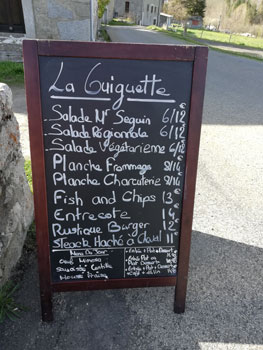 La Guiguette
Salade Mr Seguin 6/12 €
Salade Régionale 6/12
Salade Végétarienne 6/12
Planche Fromages 8/16
Planche Charcuterie 8/16
Fish and Chips 13 €
Entrecote 14 €
Rustique Burger 12 €
Steack Haché à Cheval 11 €
Menu Du Jour
Oeuf Mimosa
Lentille